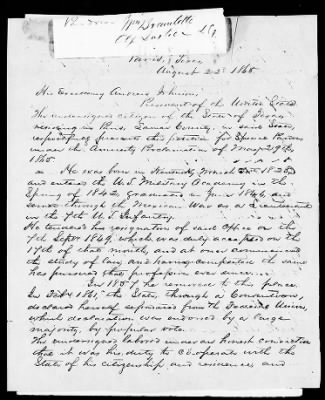 Paris, Texas
August 22d 1865
His Excellency Andrew Johnson,
President of the United States
The undersigned citizen of the State of Texas
residing in Paris, Lamar County, in said State,
respectfully presents this petition for Special Pardon
under the Amnesty Proclamation of May 29th,
1865.
He was born in Kentucky
and entered the U.S. Military Academy in the
Spring of 1842, graduated in June 1846, and
served through the Mexican War as a Lieutenant
in the 7th U.S. Infantry.
He tendered his resignation of said Office on the
7th Septr 1849, which was duly accepted on the
17th of the same month, and at once commenced
the study of law, and having completed the same
has pursued that profession ever since.
In 1857 he removed to this place.
In Feby 1861, the State, through a Convention,
declared herself separated from the Federal Union,
which declaration was endorsed by a large
majority, by popular vote.
The undersigned labored under an honest conviction
that it was his duty to co-operate with the
State of his citizenship and residence and